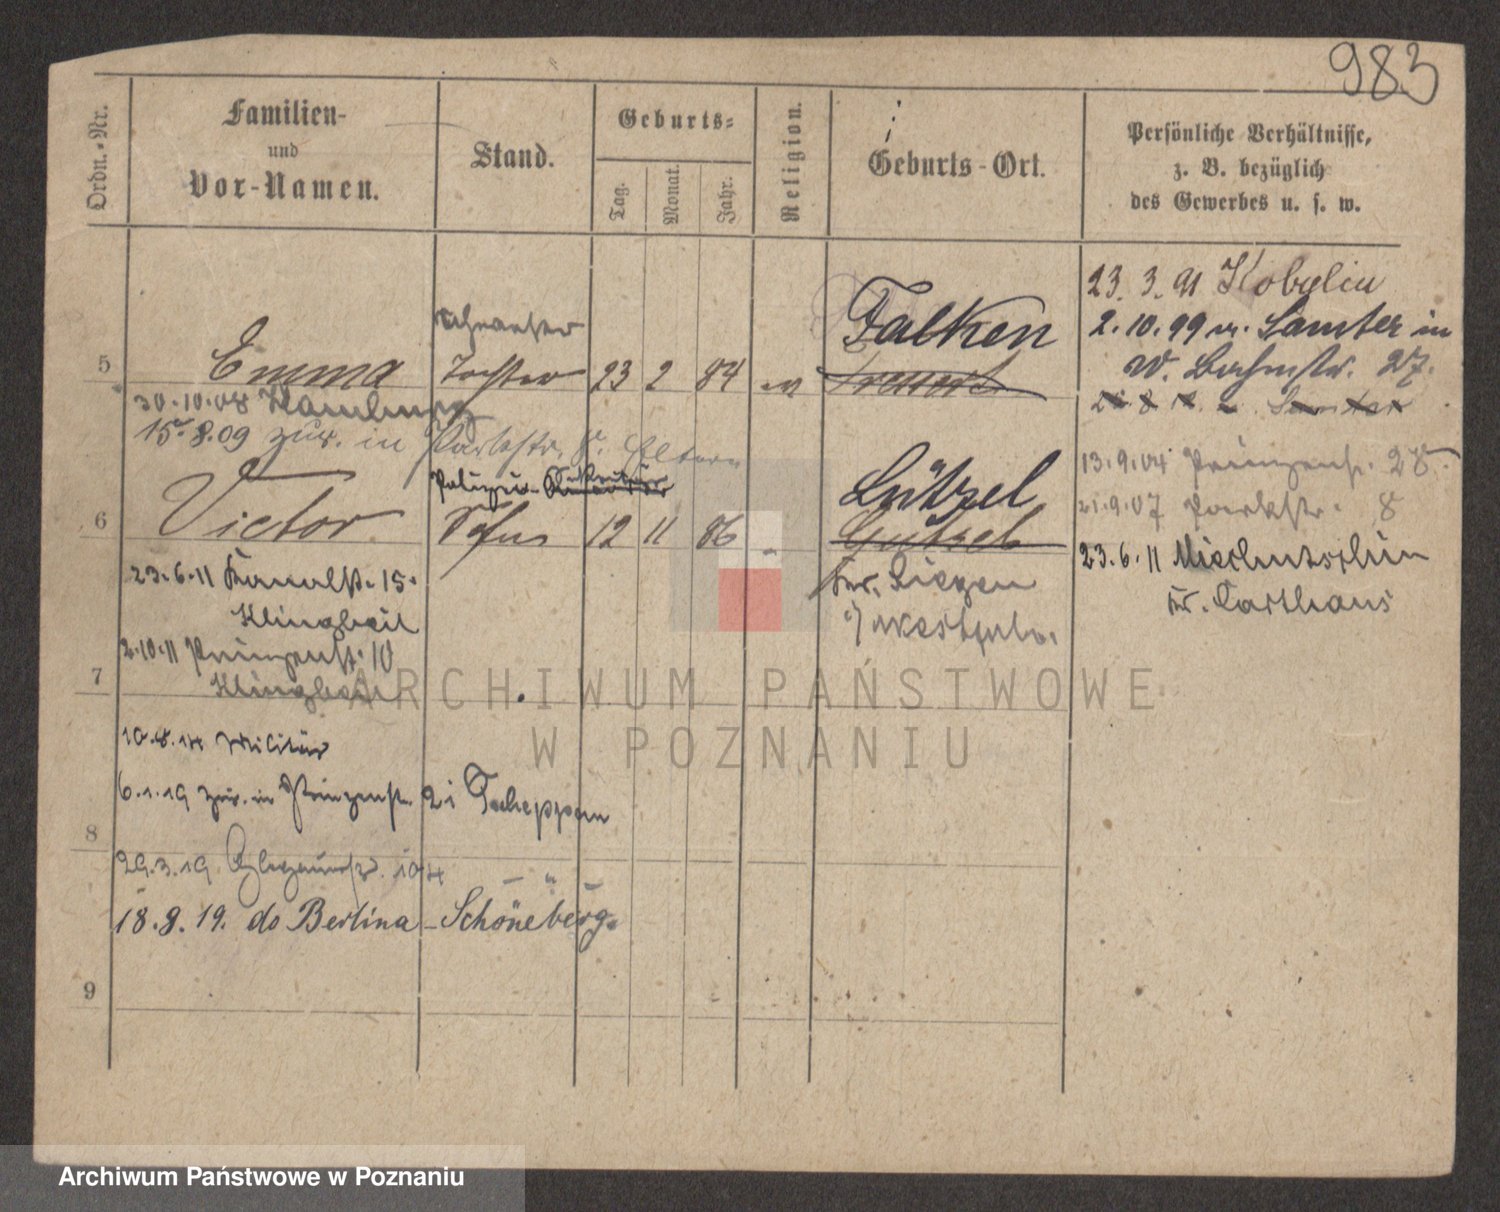 983
Ordn.-Nr.
Familien-
und
Vor-Namen.
Stand.
Geburts-
Tag.
Monat.
Jahr.
Religion.
Geburts-Ort.
Persönliche Verhältnisse,
z. B. bezüglich
des Gewerbes u. s. w.
23. 3. 91 Kobylin
2. 10. 99 v. Samter in
W. Bahnstr. 27.
5 Emma Tochter 23 2 84 Falken
30.10.08 Hamburg
15.8.09 zur. in Parkstr. 8. Eltern
13.9.04 Prinzenstr. 28.
21.9.07 Parkstr. 8
Polizei-
6 Victor Sohn 12 11 86 - Lützel
Kr. Siegen
i/ Westfalen
23.6.11
Kr. Carthaus
23.6.11 Kanalstr. 15.
Klingbeil
2.10.11 Prinzenstr. 10
Klingbeil
7
10.8.14 Militär
6.1.19 zur. in Prinzenstr. 2 i Tscheppan
8
29.3.19 104
18.8.19. do Berlina-Schöneberg.
9
ARCHIWUM PAŃSTWOWE
W POZNANIU
Archiwum Państwowe w Poznaniu